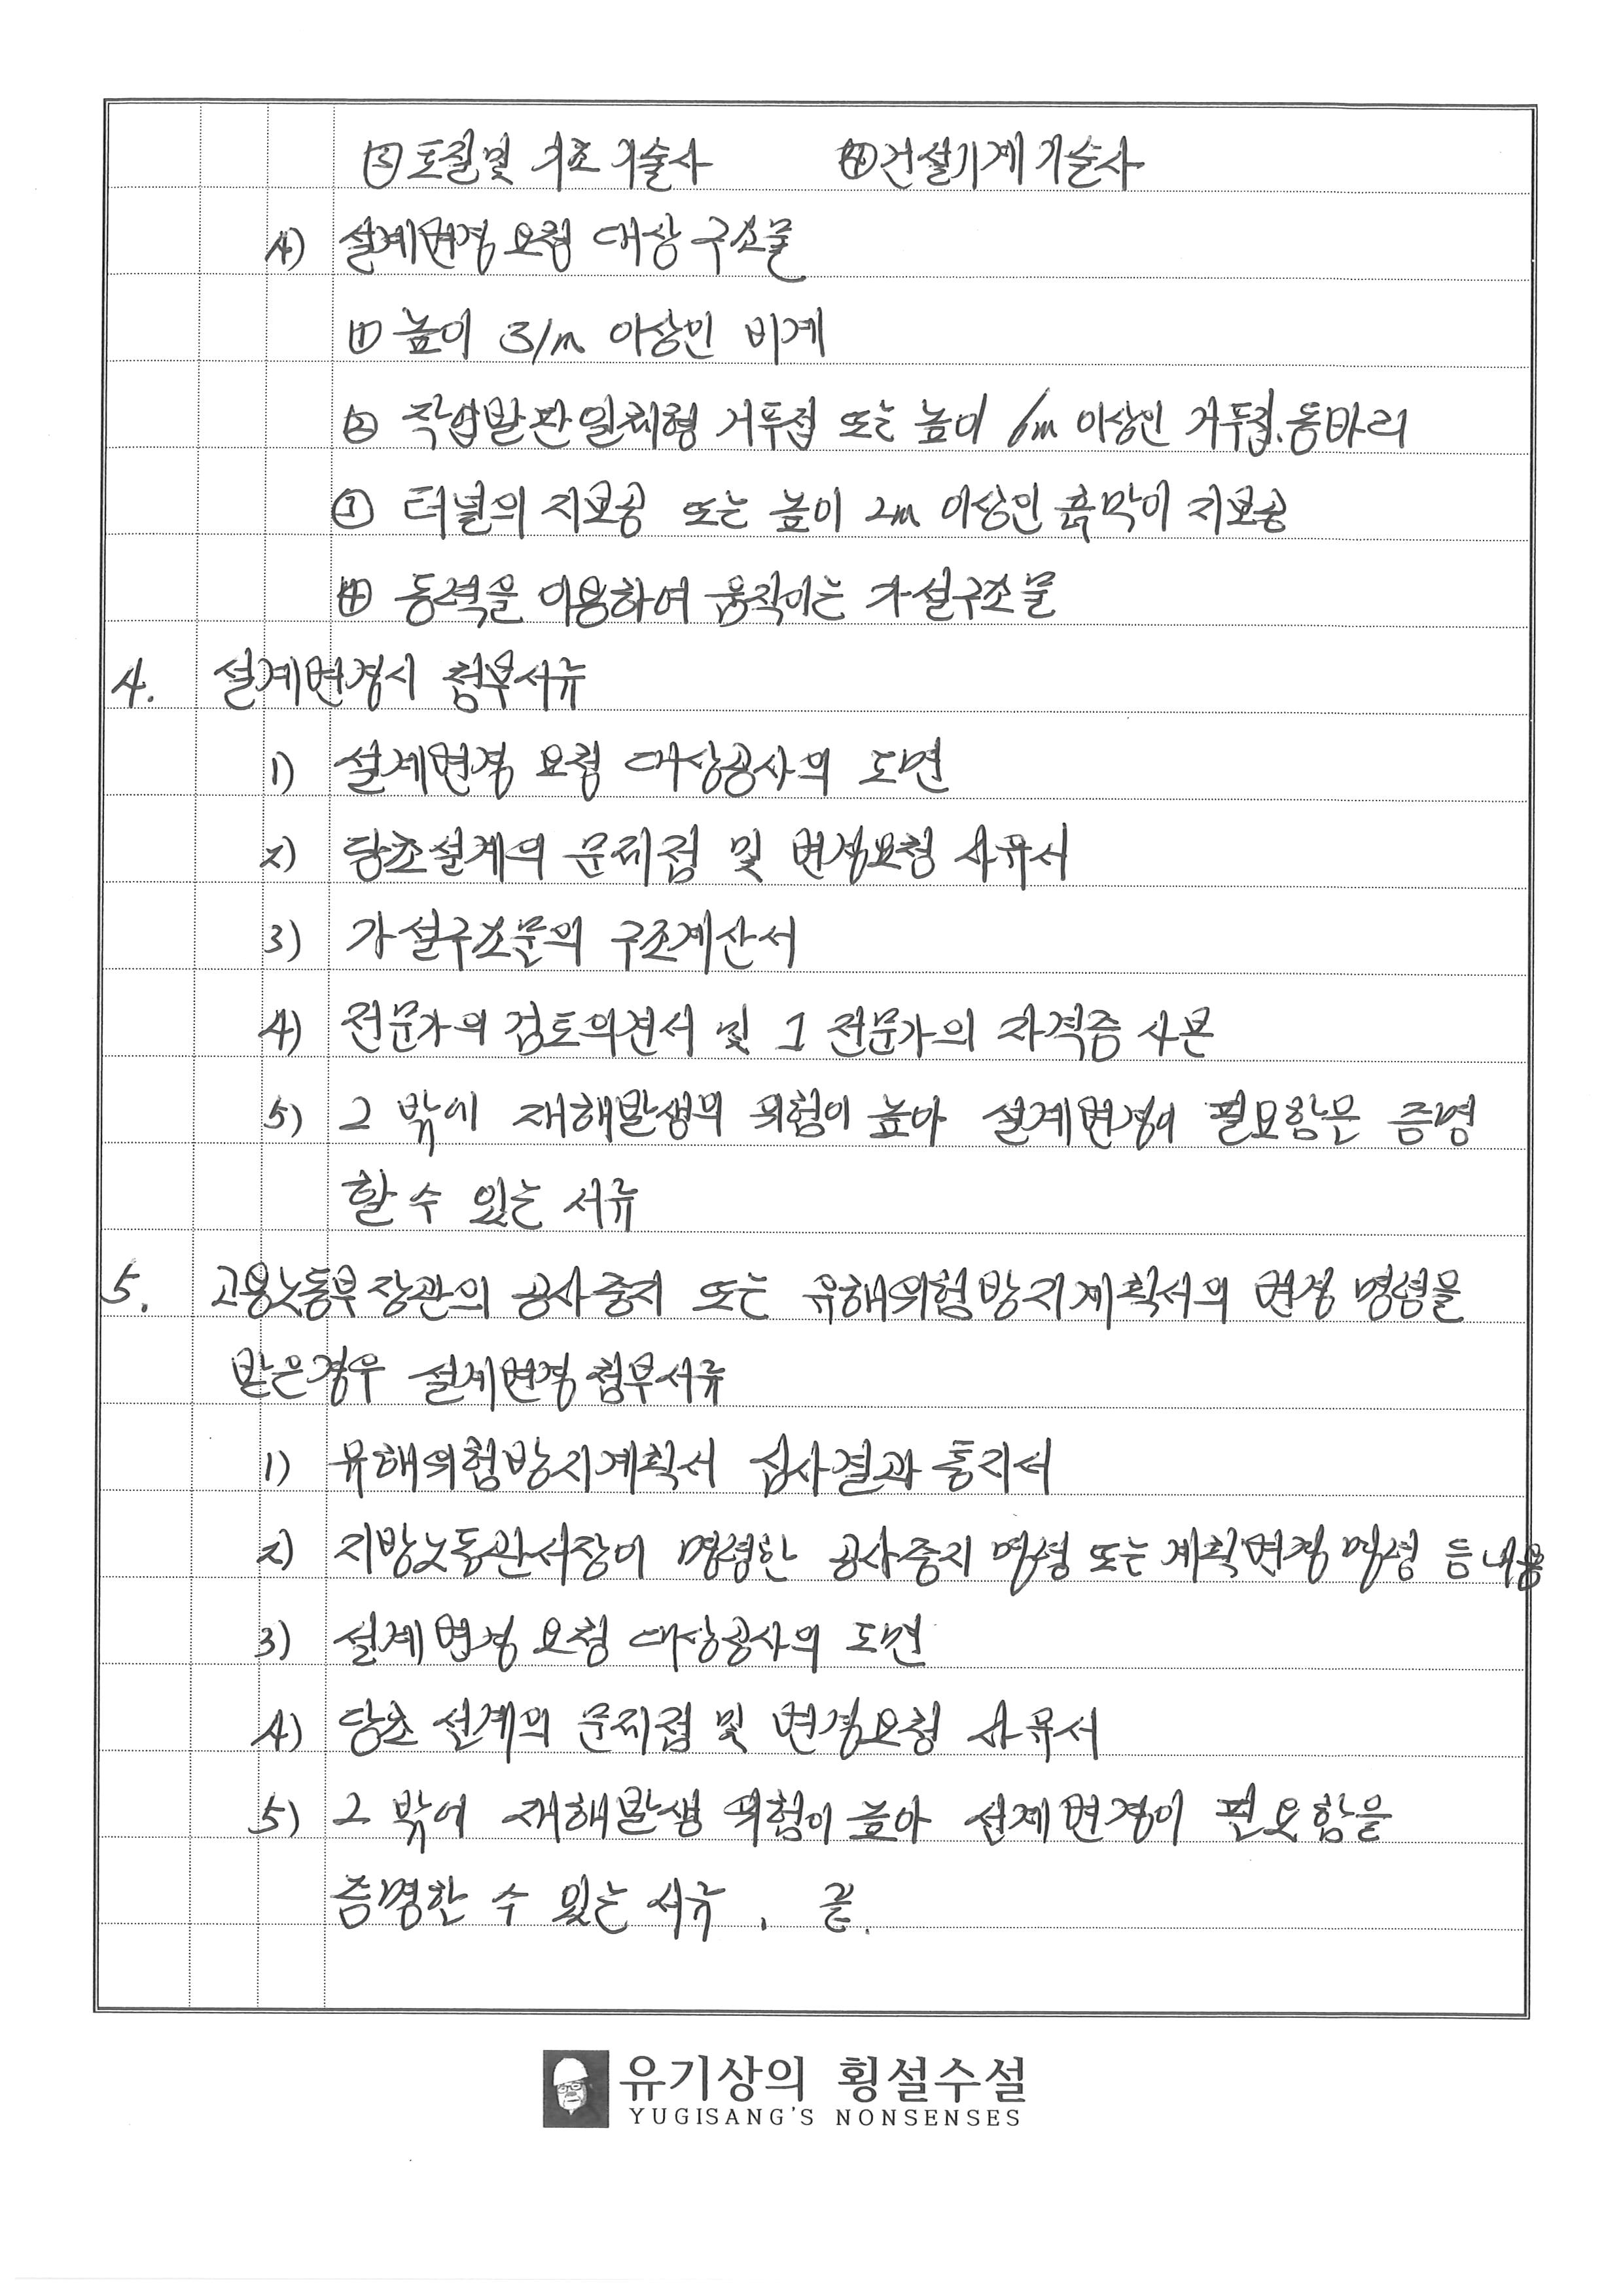 ③토질및 기초기술사 ④건설기계기술사
4) 설계변경 요청 대상 구조물
① 높이 31m 이상인 비계
② 작업발판일체형 거푸집 또는 높이 6m 이상인 거푸집.동바리
③ 터널의 지보공 또는 높이 2m 이상인 흙막이 지보공
④ 동력을 이용하여 움직이는 가설구조물
4. 설계변경시 첨부서류
1) 설계변경 요청 대상공사의 도면
2) 당초설계의 문제점 및 변경요청 사유서
3) 가설구조물의 구조계산서
4) 전문가의 검토의견서 및 그 전문가의 자격증 사본
5) 그 밖에 재해발생의 위험이 높아 설계변경이 필요함은 증명
할 수 있는 서류
5. 고용노동부장관의 공사중지 또는 유해위험방지계획서의 변경 명령을
받은경우 설계변경 첨부서류
1) 유해위험방지계획서 심사결과 통지서
2) 지방노동관서장이 명령한 공사중지 명령 또는 계획변경 명령 등 내용
3) 설계변경 요청 대상공사의 도면
4) 당초 설계의 문제점 및 변경요청 사유서
5) 그 밖에 재해발생 위험이 높아 설계변경이 필요함을
증명할 수 있는 서류. 끝.
유기상의 횡설수설
YUGISANG'S NONSENSES